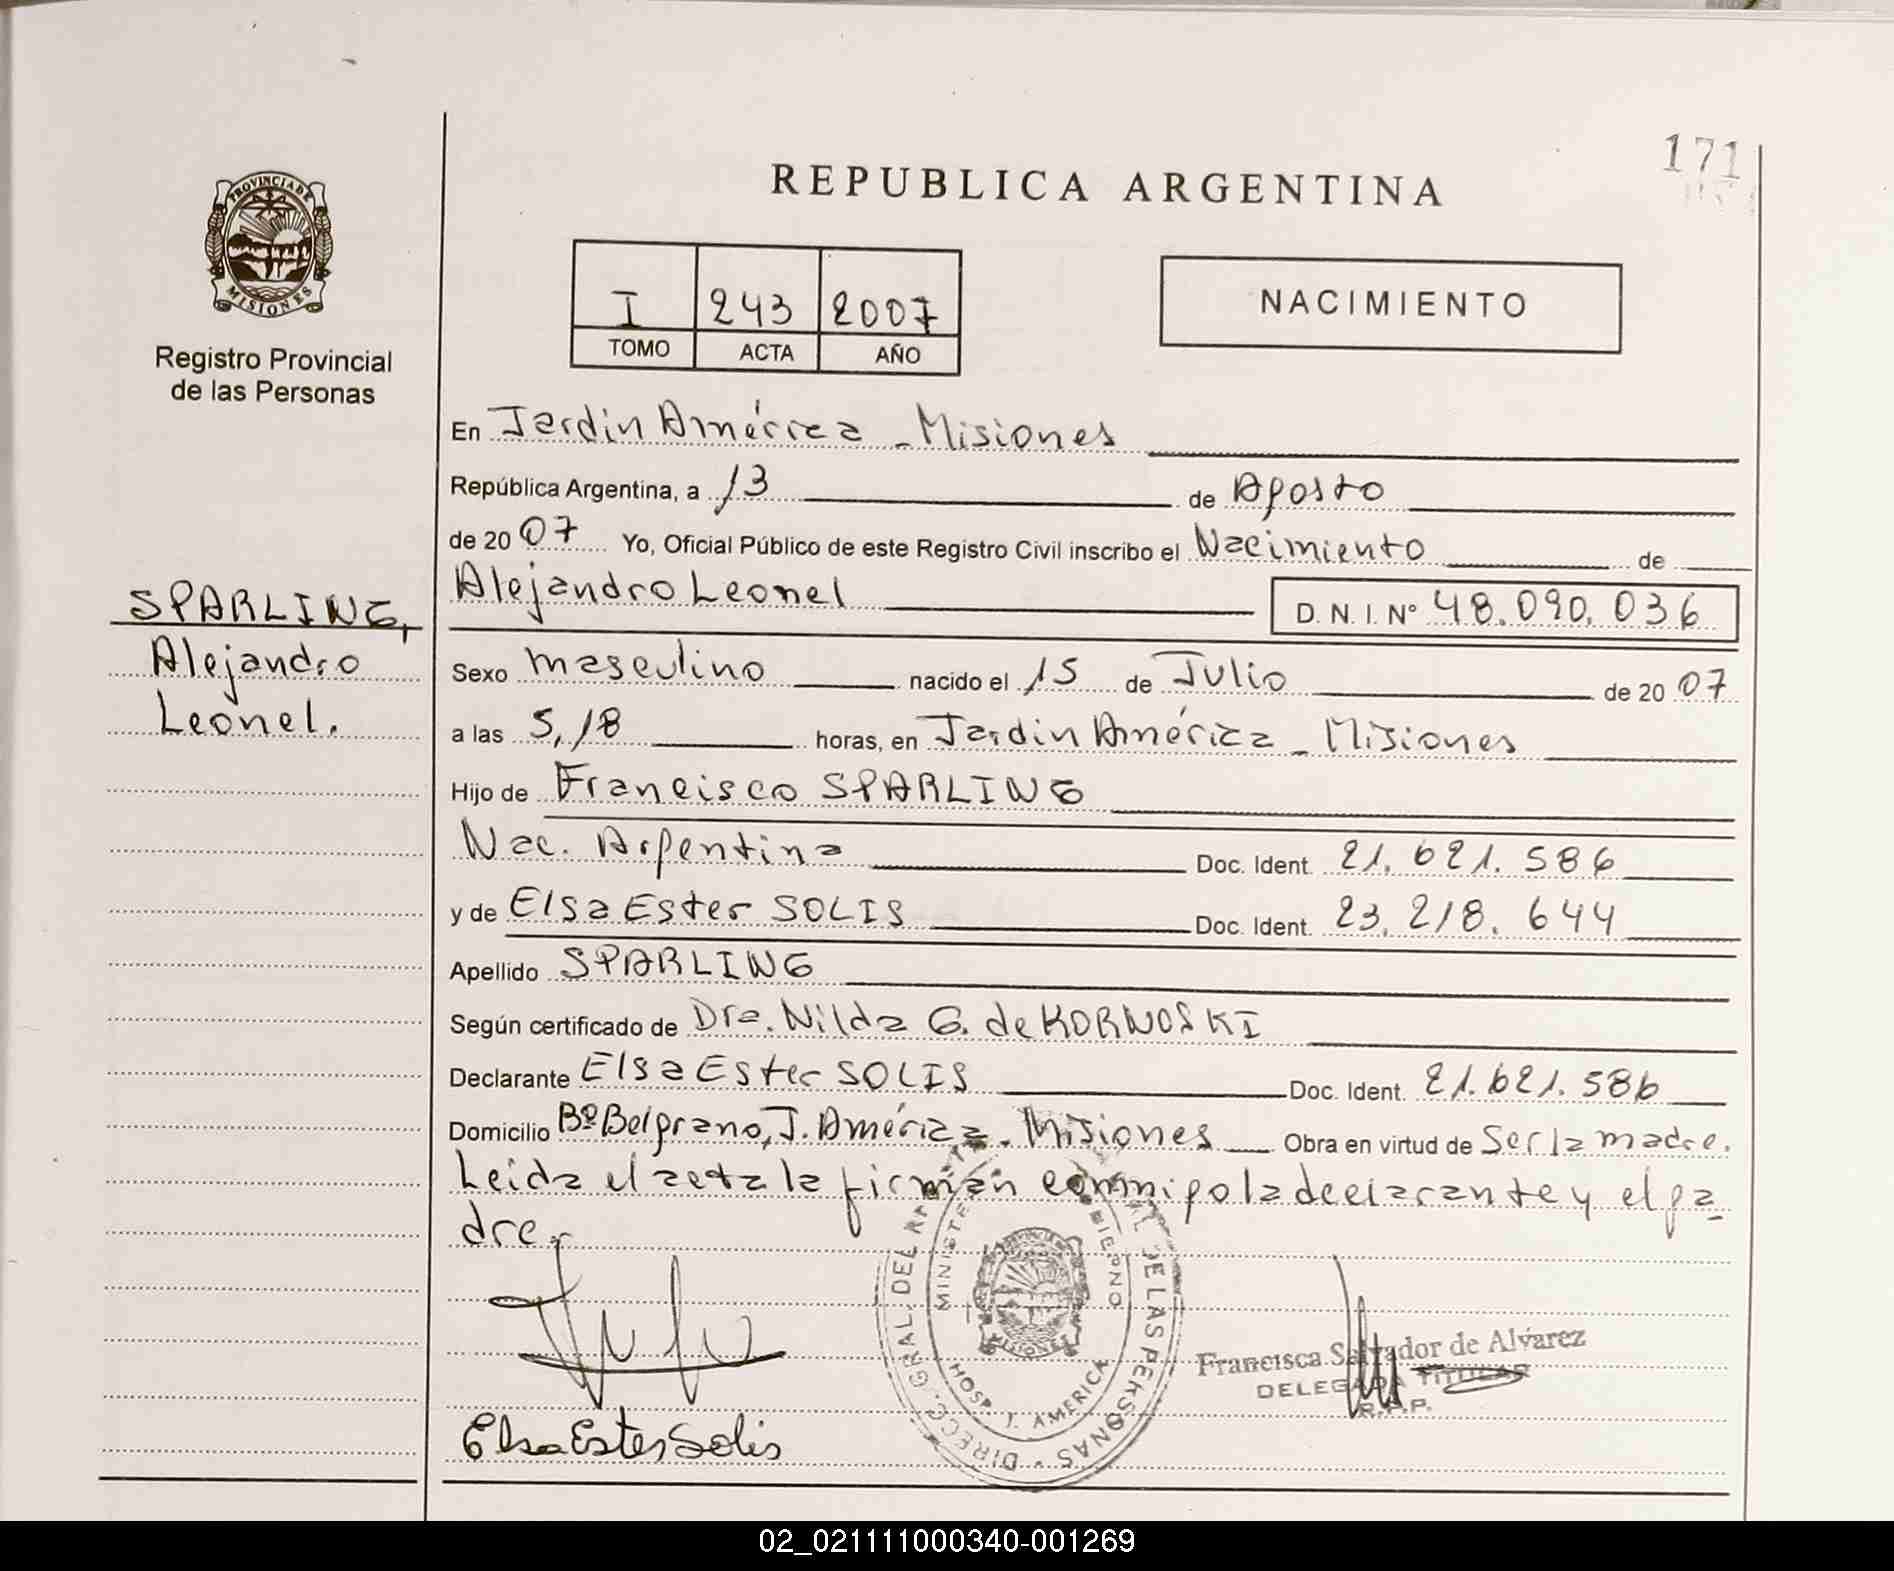 171
REPUBLICA ARGENTINA
PROVINCIA DE
MISIONES
Registro Provincial
de las Personas
I 243 2007
TOMO ACTA AÑO
NACIMIENTO
En Jardin América - Misiones
República Argentina, a 13 de Agosto
de 2007 Yo, Oficial Público de este Registro Civil inscribo el Nacimiento de
Alejandro Leonel D. N. I. Nº 48.090.036
SPARLING,
Alejandro
Leonel.
Sexo masculino nacido el 15 de Julio de 2007
a las 5,18 horas, en Jardin América - Misiones
Hijo de Francisco SPARLING
Nac. Argentina Doc. Ident. 21.621.586
y de Elsa Ester SOLIS Doc. Ident. 23.218.644
Apellido SPARLING
Según certificado de Dra. Nilda G. de KORNOSKI
Declarante Elsa Ester SOLIS Doc. Ident. 21.621.586
Domicilio Bº Belgrano, J. América - Misiones Obra en virtud de Ser la madre.
Leida el acta la firman conmigo la declarante y el pa-
dre
DIRECC. GRAL. DEL DE LAS PERSONAS
HOSP. J. AMERICA
Francisca Salvador de Alvarez
DELEGADA TITULAR
R.P.P.
Elsa Ester Solis
02_021111000340-001269